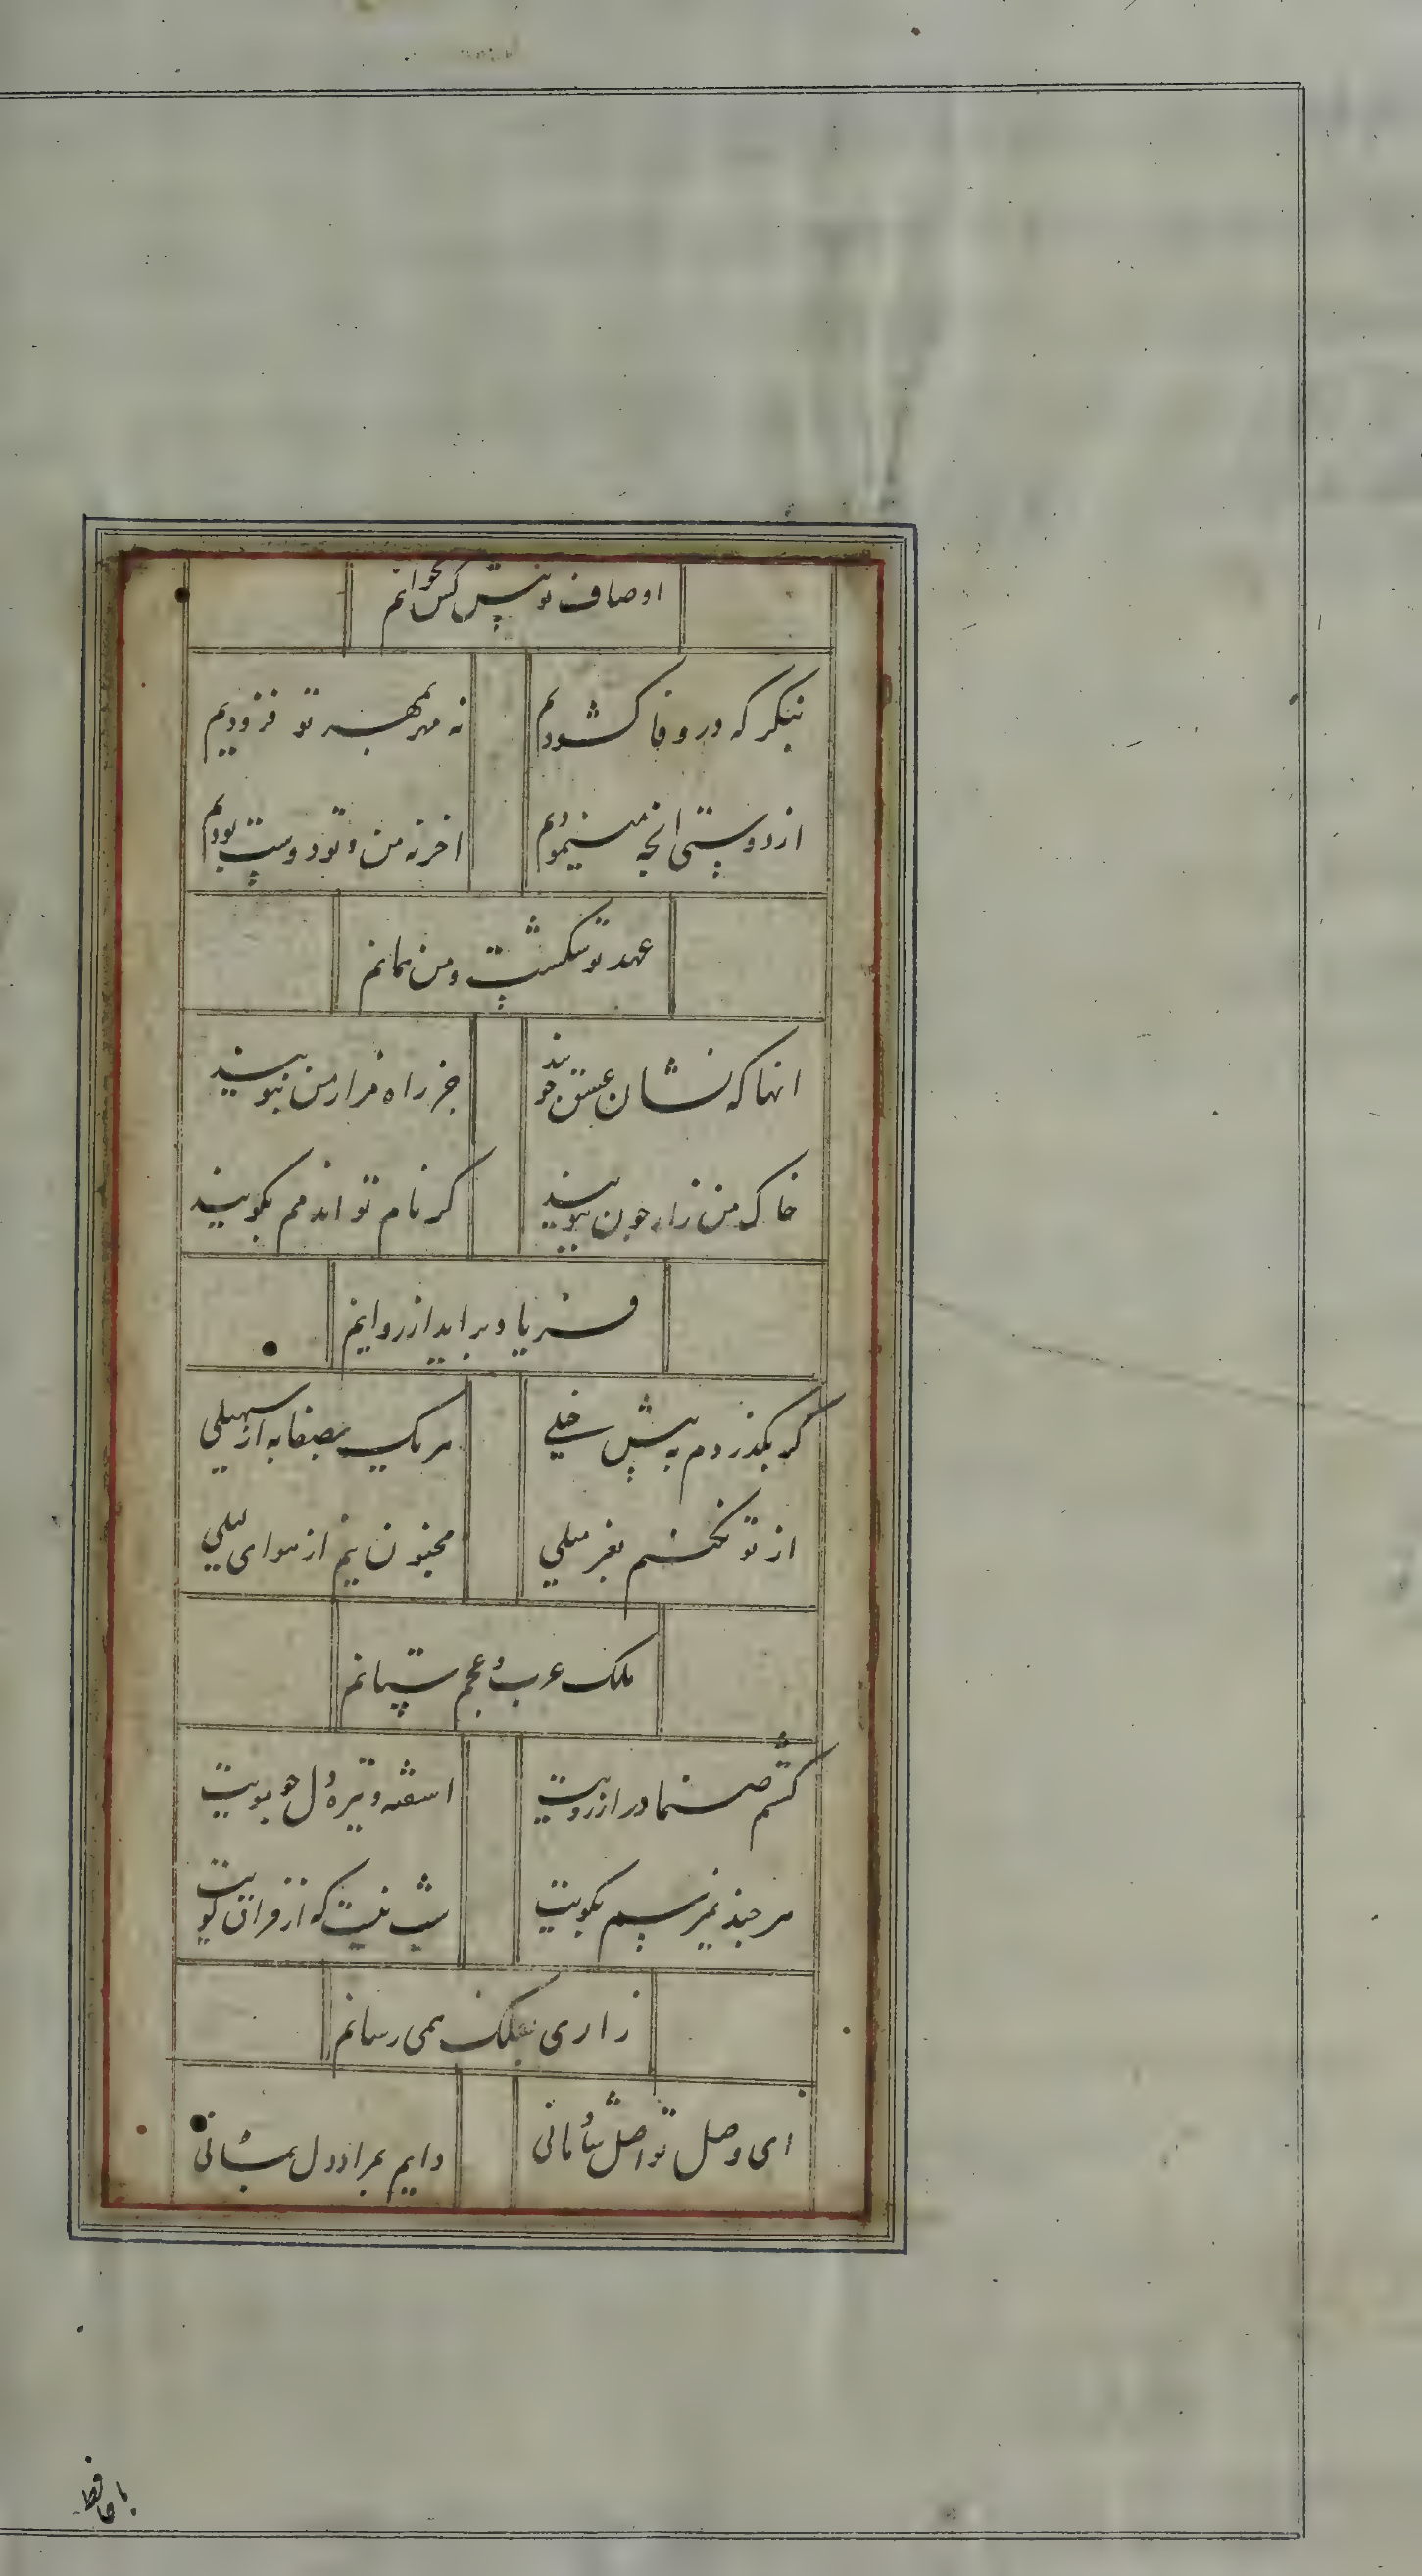 اوصاف تو پیش کس نخوانم
بنکر که در وفا کشودم نه مهر بمهر تو فزودیم
از دوستی انچه مینمودیم اخر نه من و تو دوست بودیم
عهد تو شکست و من همانم
انها که نشان عشق جویند جز راه مزار من نپویند
خاک من زار چون ببویند کر نام تو اندمم بکویند
فریاد براید از روانم
کر بکذردم به پیش خیلی هر یک بصفا به از سهیلی
از تو نکنم بغیر میلی مجنون نیم از هوای لیلی
ملک عرب و عجم ستانم
کشتم صنما در ارزویت اشفته و تیره دل چو مویت
هر چند نمیرسم بکویت شب نیست که از فراق کویت
زاری بفلک همی رسانم
ای وصل تو اصل شادمانی دایم بمراد دل بمانی
با حافظ